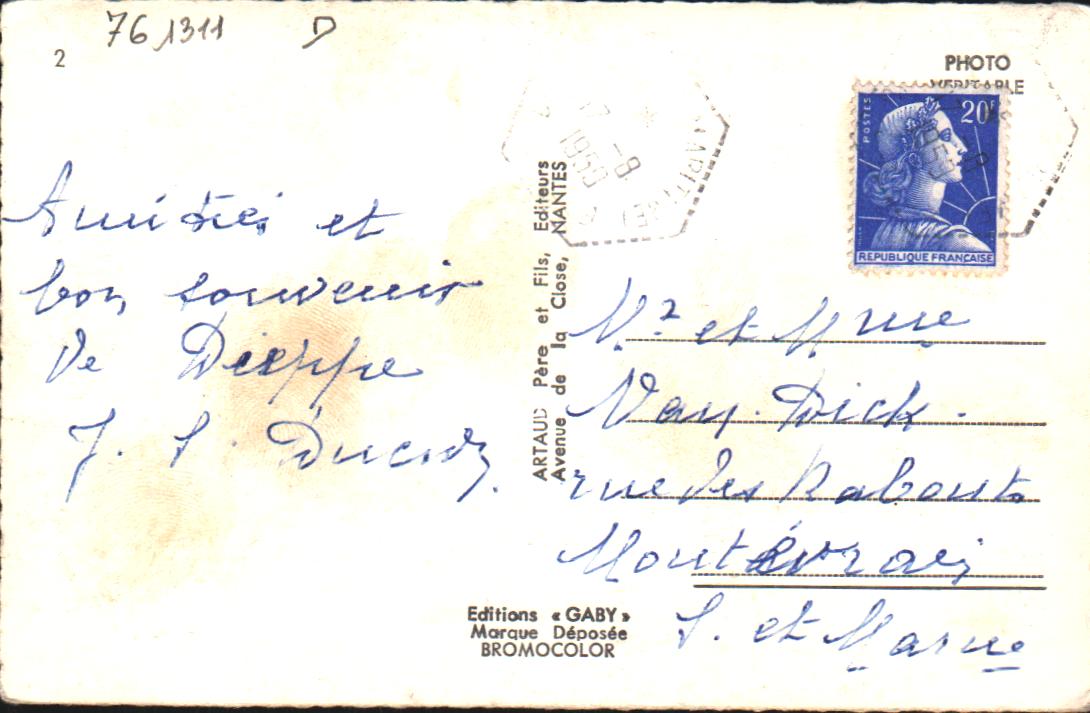 76 1311 D
2
PHOTO
VERITABLE
POSTES
20F
REPUBLIQUE FRANÇAISE
17 -8
MARITIME
Amitiés et
bon souvenir
de Dieppe
J. S.
ARTAUD Père et Fils, Editeurs
Avenue de la Close, NANTES
Mr et Mme
Van. Dick.
rue des Rabouts
Montévrain
S. et Marne
Editions « GABY »
Marque Déposée
BROMOCOLOR